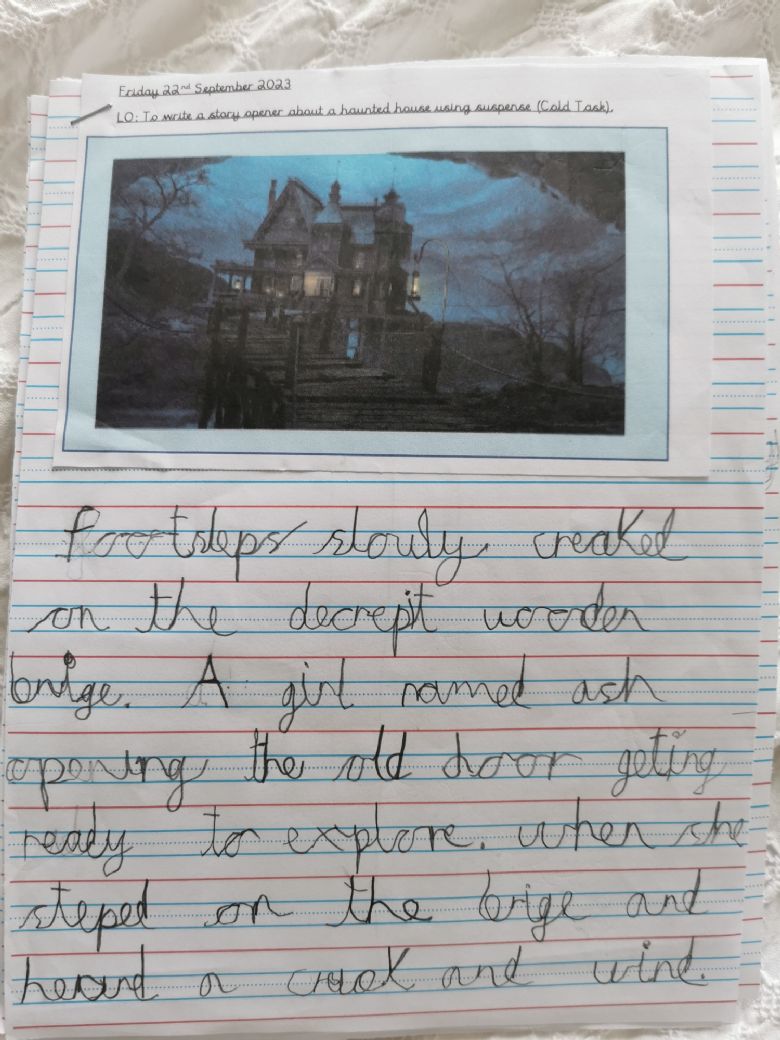 Friday 22nd September 2023
LO: To write a story opener about a haunted house using suspense (Cold Task).
footsteps slowly creaked
on the decrepit wooden
brige. A girl named ash
opening the old door geting
ready to explore. when she
steped on the brige and
heard a crack and wind.